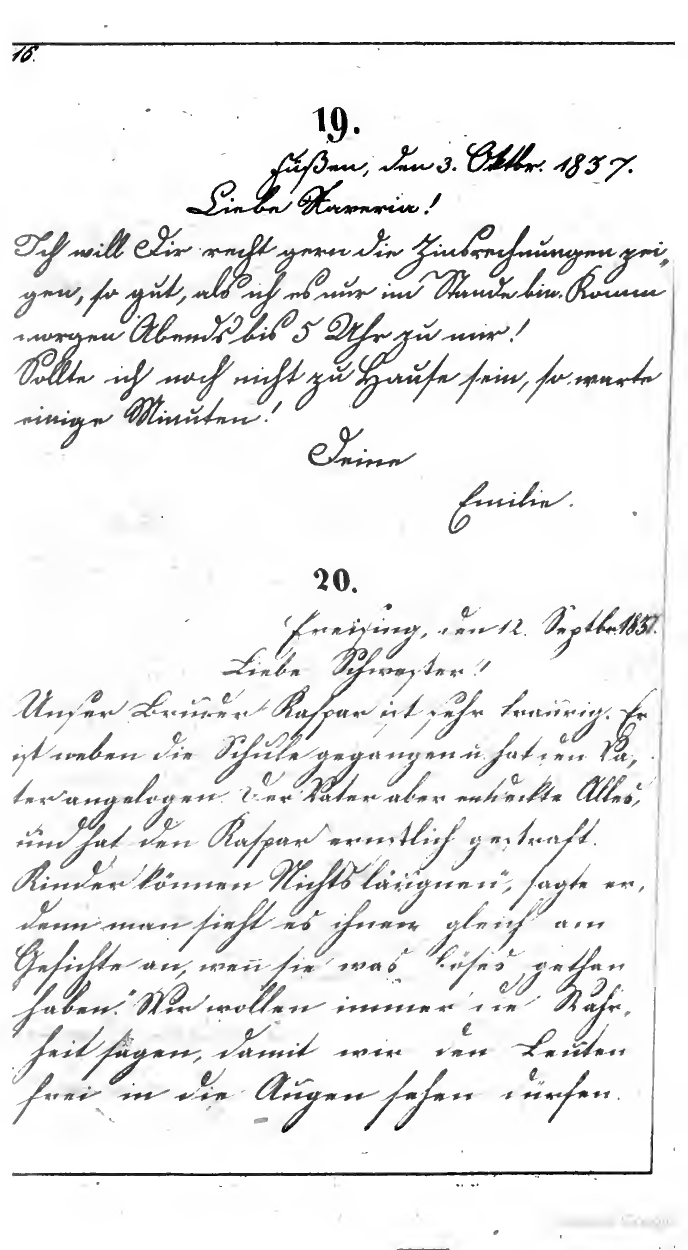 16.
19.
Füßen, den 3. Oktbr. 1837.
Liebe Xaveria!
Ich will Dir recht gern die Zinsrechnungen zei-
gen, so gut, als ich es nur im Stande bin. Komm
morgen Abends bis 5 Uhr zu mir!
Sollte ich noch nicht zu Hause sein, so warte
einige Minuten!
Deine
Emilie.
20.
Freising, den 12. Septbr. 1837.
Liebe Schwester!
Unser Bruder Kaspar ist sehr traurig. Er
ist neben die Schule gegangen u. hat den Va-
ter angelogen. Der Vater aber entdeckte Alles,
und hat den Kaspar ernstlich gestraft.
Kinder können Nichts läugnen", sagte er,
denn man sieht es ihnen gleich am
Gesichte an, wen̄ sie was Böses gethan
haben." Wir wollen immer die Wahr-
heit sagen, damit wir den Leuten
frei in die Augen sehen dürfen.